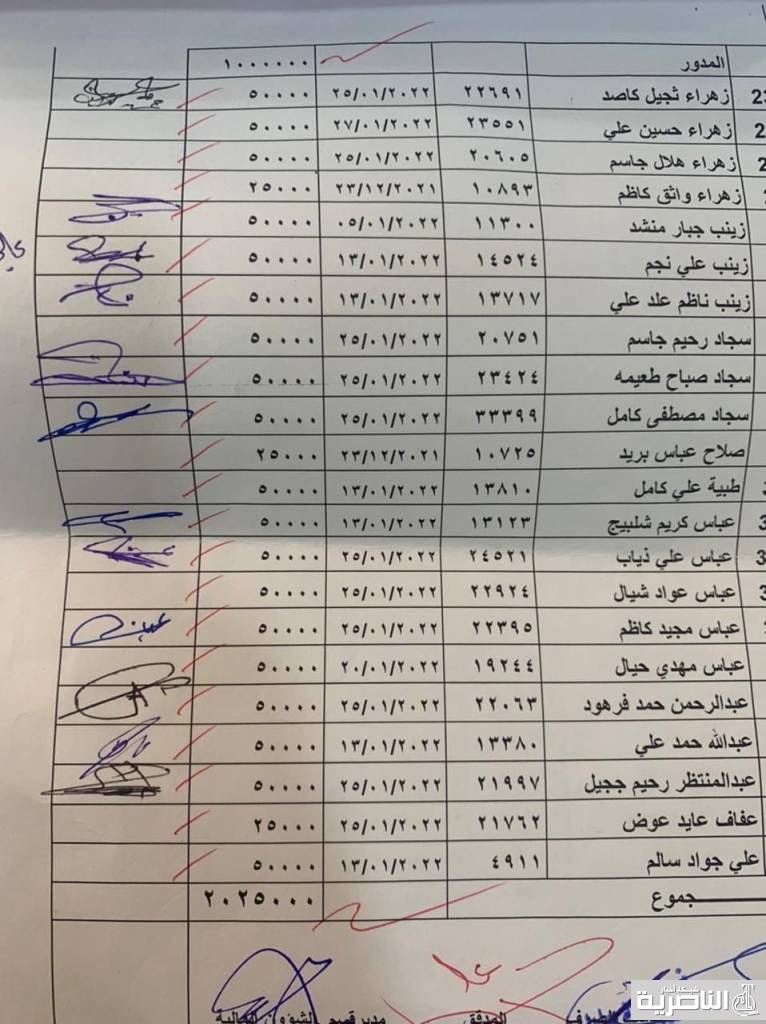 المدور ١٠٠٠٠٠٠
زهراء ثجيل كاصد ٢٢٦٩١ ٢٥/٠١/٢٠٢٢ ٥٠٠٠٠
زهراء حسين علي ٢٣٥٥١ ٢٧/٠١/٢٠٢٢ ٥٠٠٠٠
زهراء هلال جاسم ٢٠٦٠٥ ٢٥/٠١/٢٠٢٢ ٥٠٠٠٠
زهراء واثق كاظم ١٠٨٩٣ ٢٣/١٢/٢٠٢١ ٢٥٠٠٠
زينب جبار منشد ١١٣٠٠ ٠٥/٠١/٢٠٢٢ ٥٠٠٠٠
زينب علي نجم ١٤٥٢٤ ١٣/٠١/٢٠٢٢ ٥٠٠٠٠
زينب ناظم علد علي ١٣٧١٧ ١٣/٠١/٢٠٢٢ ٥٠٠٠٠
سجاد رحيم جاسم ٢٠٧٥١ ٢٥/٠١/٢٠٢٢ ٥٠٠٠٠
سجاد صباح طعيمه ٢٣٤٢٤ ٢٥/٠١/٢٠٢٢ ٥٠٠٠٠
سجاد مصطفى كامل ٣٣٣٩٩ ٢٥/٠١/٢٠٢٢ ٥٠٠٠٠
صلاح عباس بريد ١٠٧٢٥ ٢٣/١٢/٢٠٢١ ٢٥٠٠٠
طيبة علي كامل ١٣٨١٠ ١٣/٠١/٢٠٢٢ ٥٠٠٠٠
عباس كريم شلبيج ١٣١٢٣ ١٣/٠١/٢٠٢٢ ٥٠٠٠٠
عباس علي ذياب ٢٤٥٢١ ٢٥/٠١/٢٠٢٢ ٥٠٠٠٠
عباس عواد شيال ٢٢٩٢٤ ٢٥/٠١/٢٠٢٢ ٥٠٠٠٠
عباس مجيد كاظم ٢٢٣٩٥ ٢٥/٠١/٢٠٢٢ ٥٠٠٠٠
عباس مهدي حيال ١٩٢٤٤ ٢٠/٠١/٢٠٢٢ ٥٠٠٠٠
عبدالرحمن حمد فرهود ٢٢٠٦٣ ٢٥/٠١/٢٠٢٢ ٥٠٠٠٠
عبدالله حمد علي ١٣٣٨٠ ١٣/٠١/٢٠٢٢ ٥٠٠٠٠
عبدالمنتظر رحيم ججيل ٢١٩٩٧ ٢٥/٠١/٢٠٢٢ ٥٠٠٠٠
عفاف عايد عوض ٢١٧٦٢ ٢٥/٠١/٢٠٢٢ ٢٥٠٠٠
علي جواد سالم ٤٩١١ ١٣/٠١/٢٠٢٢ ٥٠٠٠٠
جموع ٢٠٢٥٠٠٠
المدقق مدير قسم الشؤون المالية
الناصرية